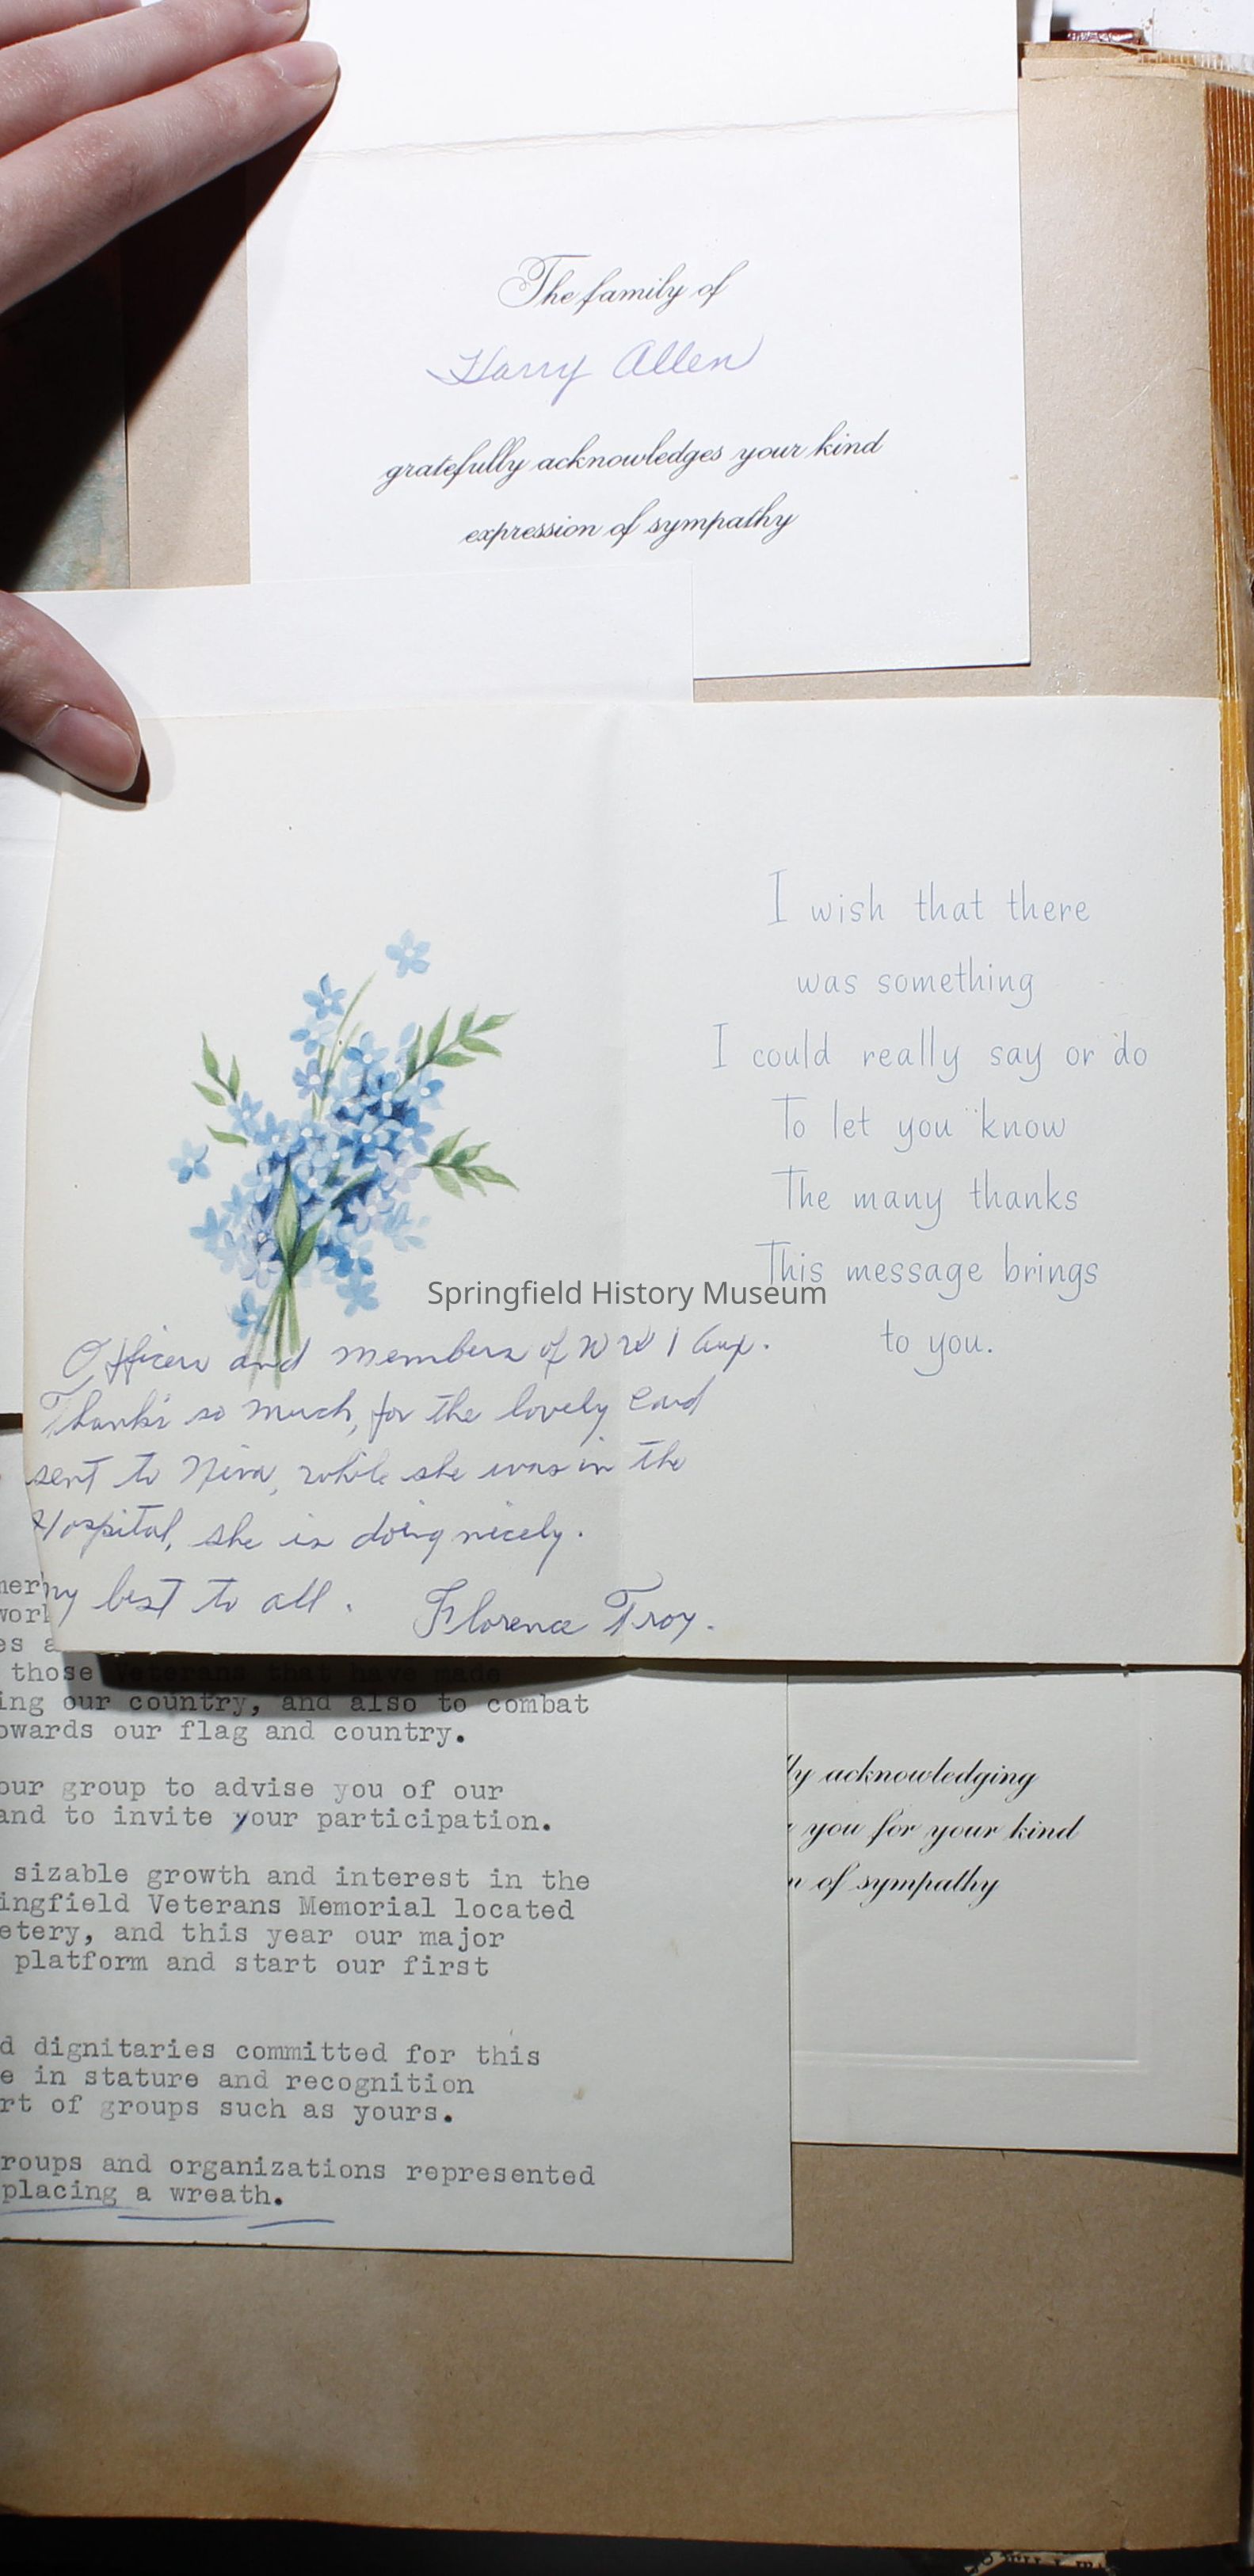 The family of
Harry Allen
gratefully acknowledges your kind
expression of sympathy
I wish that there
was something
I could really say or do
To let you know
The many thanks
This message brings
to you.
Springfield History Museum
Officers and members of WW 1 Aux.
Thanks so much, for the lovely card
sent to Niva, while she was in the
Hospital, she is doing nicely.
my best to all. Florence Troy.
those Veterans that have made
ing our country, and also to combat
owards our flag and country.
our group to advise you of our
and to invite your participation.
sizable growth and interest in the
ingfield Veterans Memorial located
etery, and this year our major
platform and start our first
d dignitaries committed for this
e in stature and recognition
rt of groups such as yours.
roups and organizations represented
placing a wreath.
ly acknowledging
you for your kind
n of sympathy